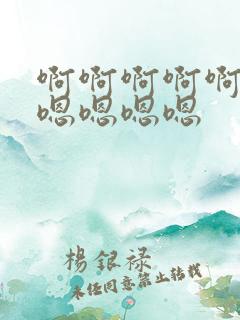 啊啊啊啊啊
嗯嗯嗯嗯
楊銀禄
未经同意禁止转载